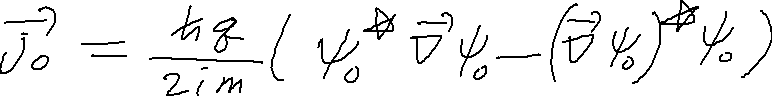 \vec{j_0} = \frac{\hbar q}{2im} ( \psi_0^* \vec{\nabla} \psi_0 - (\vec{\nabla} \psi_0)^* \psi_0 )